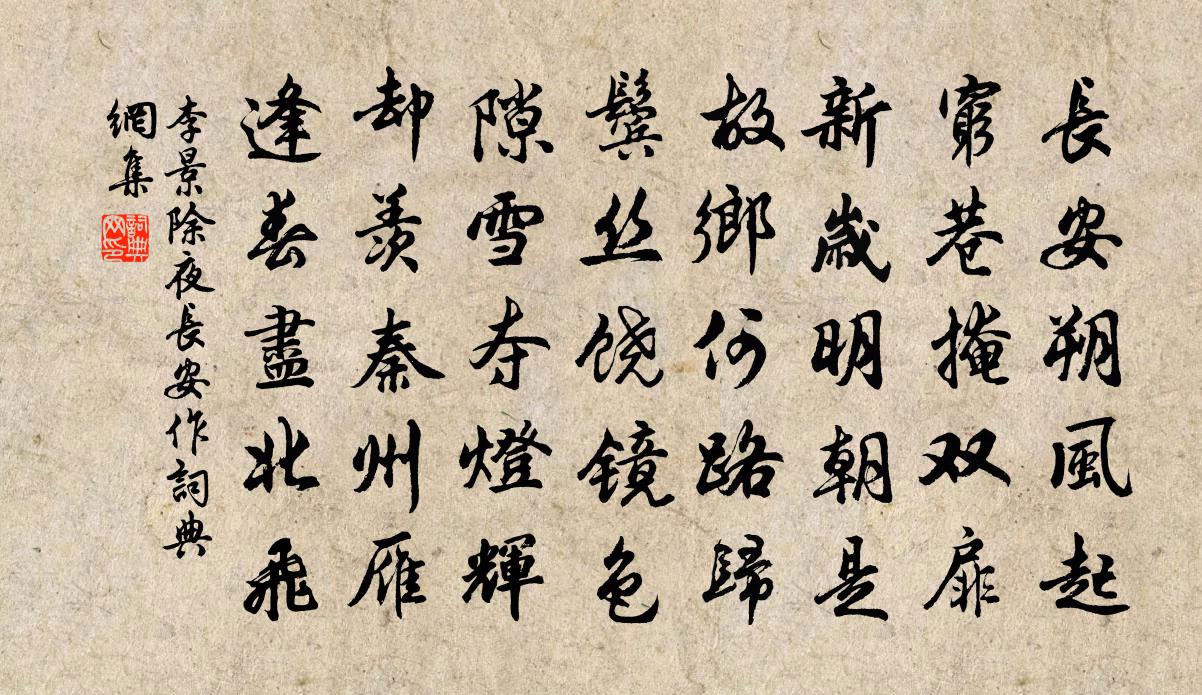 長安朔風起
窮巷掩双扉
新歲明朝是
故鄉何路歸
鬓丝饶镜色
隙雪夺燈輝
却羨秦州雁
逢春盡北飛
李景除夜長安作詞典
網集
詞典網印